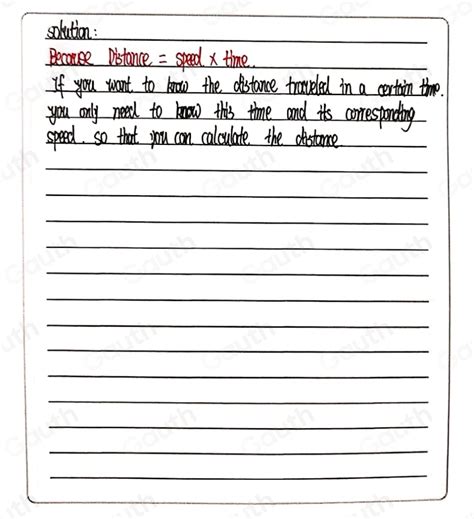 solution:
Because Distance = speed × time.
If you want to know the distance traveled in a certain time.
you only need to know this time and its corresponding
speed. so that you can calculate the distance